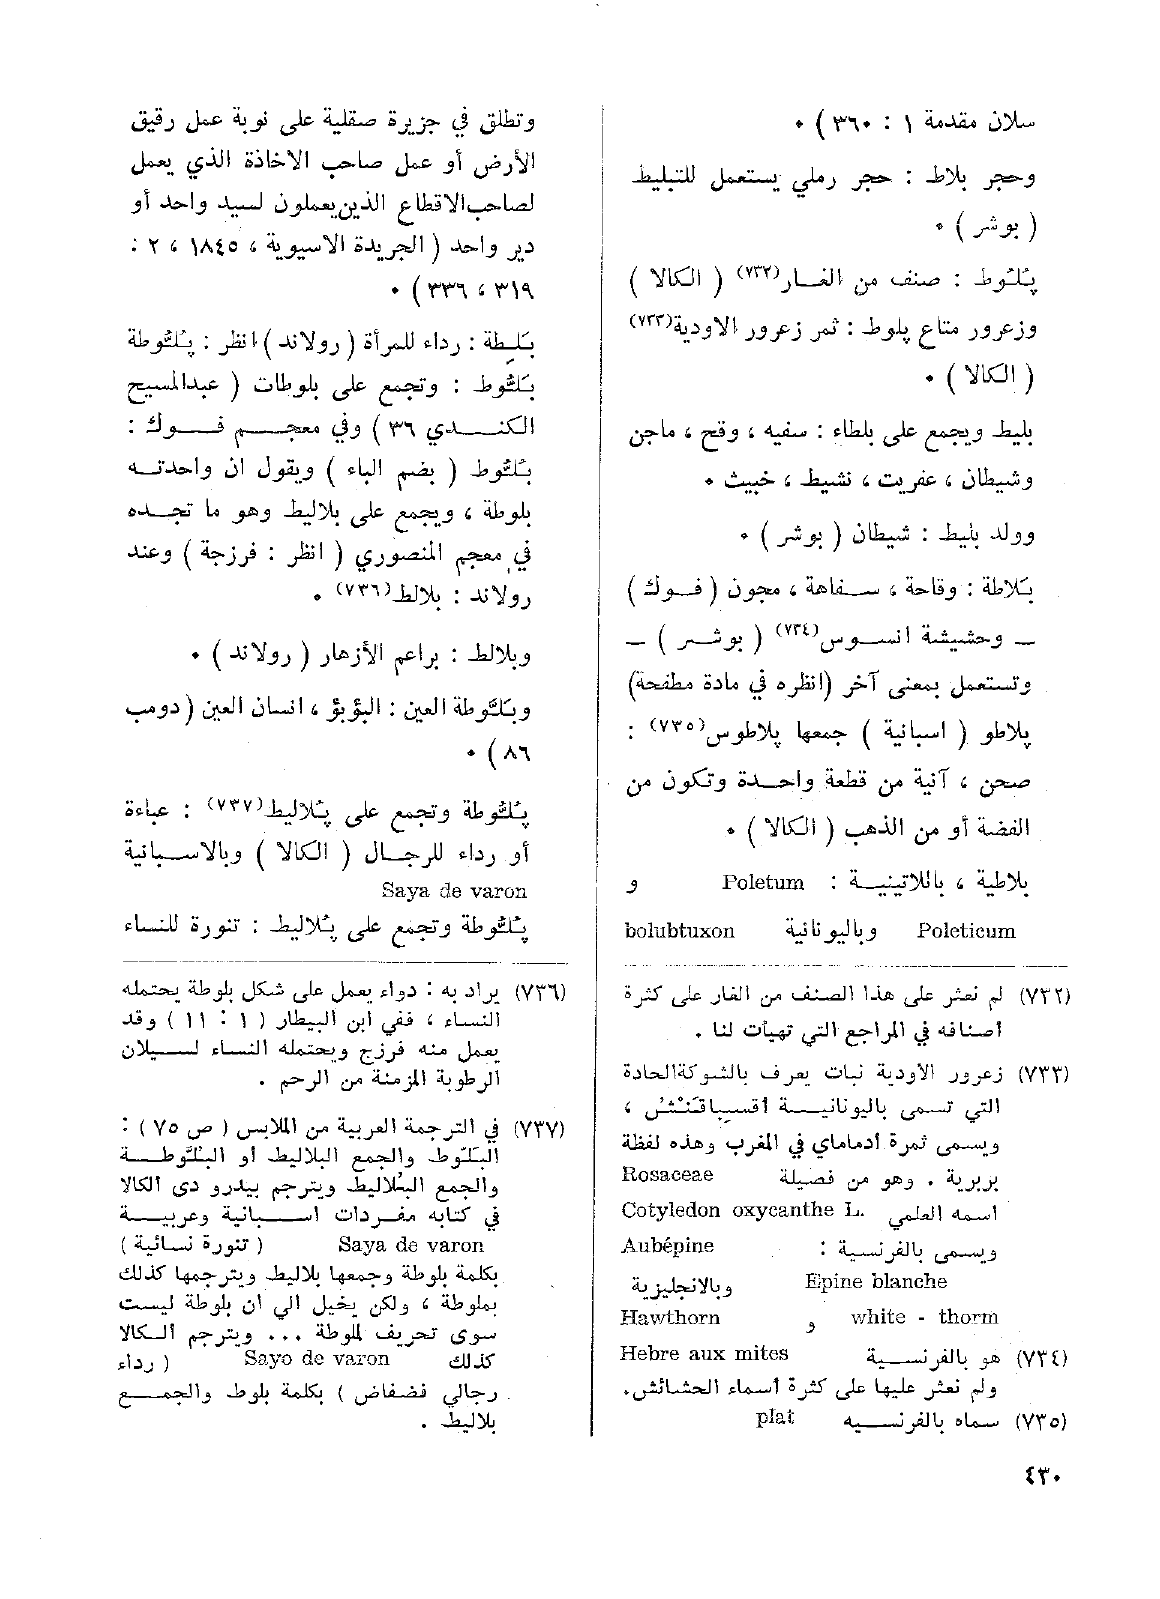 سلان مقدمة ١ : ٣٦٠ ) ٠
وحجر بلاط : حجر رملي يستعمل للتبليط
( بوشر ) ٠
پلوط : صنف من الفـار(٧٣٢) ( الكالا )
وزعرور متاع پلوط : ثمر زعرور الاودية(٧٣٣)
( الكالا ) ٠
بليط ويجمع على بلطاء : سفيه ، وقح ، ماجن
وشيطان ، عفريت ، نشيط ، خبيث ٠
وولد بليط : شيطان ( بوشر ) ٠
بَلاطة : وقاحة ، سـفاهة ، مجون ( فـوك )
ـ وحشيشة انسـوس(٧٣٤) ( بوشـر ) ـ
وتستعمل بمعنى آخر (انظره في مادة مطفحة)
پلاطو ( اسبانية ) جمعها پلاطوس(٧٣٥) :
صحن ، آنية من قطعة واحـدة وتكون من
الفضة أو من الذهب ( الكالا ) ٠
بلاطية ، باللاتينيـة : Poletum و
Poleticum وباليونانية bolubtuxon
(٧٣٢) لم نعثر على هذا الصنف من الفار على كثرة
اصنافه في المراجع التي تهيأت لنا .
(٧٣٣) زعرور الاودية نبات يعرف بالشوكةالحادة
التي تسـمى باليونانيـــة أقسـياقنشش ،
ويسمى ثمرة أدماماي في المغرب وهذه لفظة
بربرية . وهو من فصيلة Rosaceae
اسمه العلمي Cotyledon oxycanthe L.
ويسمى بالفرنسية : Aubépine
Epine blanche وبالانجليزية
white - thorm و Hawthorn
(٧٣٤) هو بالفرنسـية Hebre aux mites
ولم نعثر عليها على كثرة أسماء الحشائش.
(٧٣٥) سماه بالفرنسـيه plat
وتطلق في جزيرة صقلية على نوبة عمل رقيق
الأرض أو عمل صاحب الاخاذة الذي يعمل
لصاحب الاقطاع الذين يعملون لسيد واحد أو
دير واحد ( الجريدة الاسيوية ، ١٨٤٥ ، ٢ :
٣١٩ ، ٣٣٦ ) ٠
بَلِطة : رداء للمرأة ( رولاند ) انظر : پلّوطة
بَلّوط : وتجمع على بلوطات ( عبدالمسيح
الكنـدي ٣٦ ) وفي معجـم فـوك :
بُلّوط ( بضم الباء ) ويقول ان واحدتـه
بلوطة ، ويجمع على بلاليط وهو ما تجـده
في معجم المنصوري ( انظر : فرزجة ) وعند
رولاند : بلالط(٧٣٦) ٠
وبلالط : براعم الأزهار ( رولاند ) ٠
وبَلّوطة العين : البؤبؤ ، انسان العين ( دومب
٨٦ ) ٠
پلّوطة وتجمع على پَلاليط(٧٣٧) : عباءة
أو رداء للرجـال ( الكالا ) وبالاسـبانية
Saya de varon
پلّوطة وتجمع على پَلاليط : تنورة للنساء
(٧٣٦) يراد به : دواء يعمل على شكل بلوطة يحتمله
النساء ، ففي ابن البيطار ( ١ : ١١ ) وقد
يعمل منه فرزج ويحتمله النساء لسـيلان
الرطوبة المزمنة من الرحم .
(٧٣٧) في الترجمة العربية من الملابس ( ص ٧٥ ) :
البلوط والجمع البلاليط أو البلّوطـة
والجمع البلاليط ويترجم بيدرو دى الكالا
في كتابه مفـردات اسـبانية وعربيـة
Saya de varon ( تنورة نسائية )
بكلمة بلوطة وجمعها بلاليط ويترجمها كذلك
بملوطة ، ولكن يخيل الي ان بلوطة ليست
سوى تحريف لملوطة ... ويترجم الكالا
كذلك Sayo de varon ( رداء
رجالي فضفاض ) بكلمة بلوط والجمـع
بلاليط .
٤٣٠